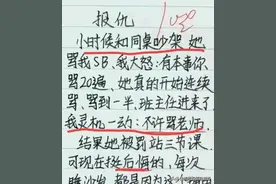 报仇
100
小时候和同桌吵架,她
骂我SB,我大怒:有本事你
骂20遍,她真的开始连续
骂,骂到一半,班主任进来了
我灵机一动:不许骂老师。
结果她被罚站三节课
可现在挺后悔的,每次
都是因为这